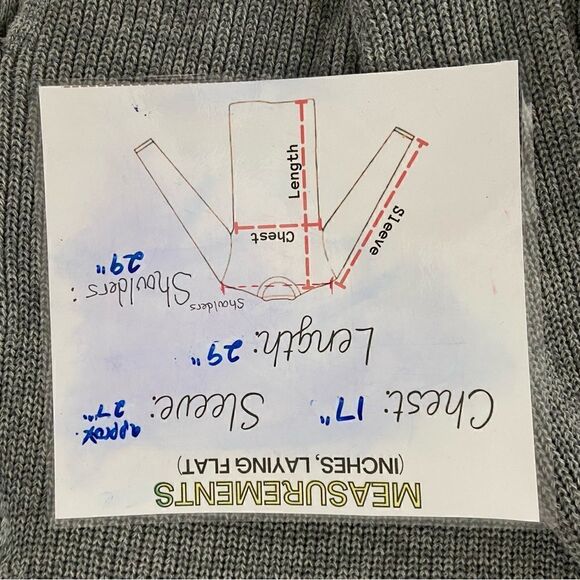 MEASUREMENTS
(INCHES, LAYING FLAT)
Chest: 17" Sleeve: approx. 27"
Length: 29"
Shoulders: 29"
Shoulders
Chest
Sleeve
Length